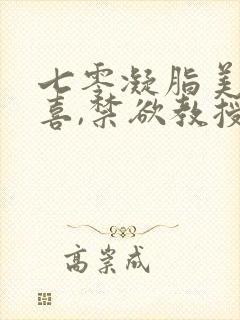 七零凝脂美
喜,禁欲教授
高崇成